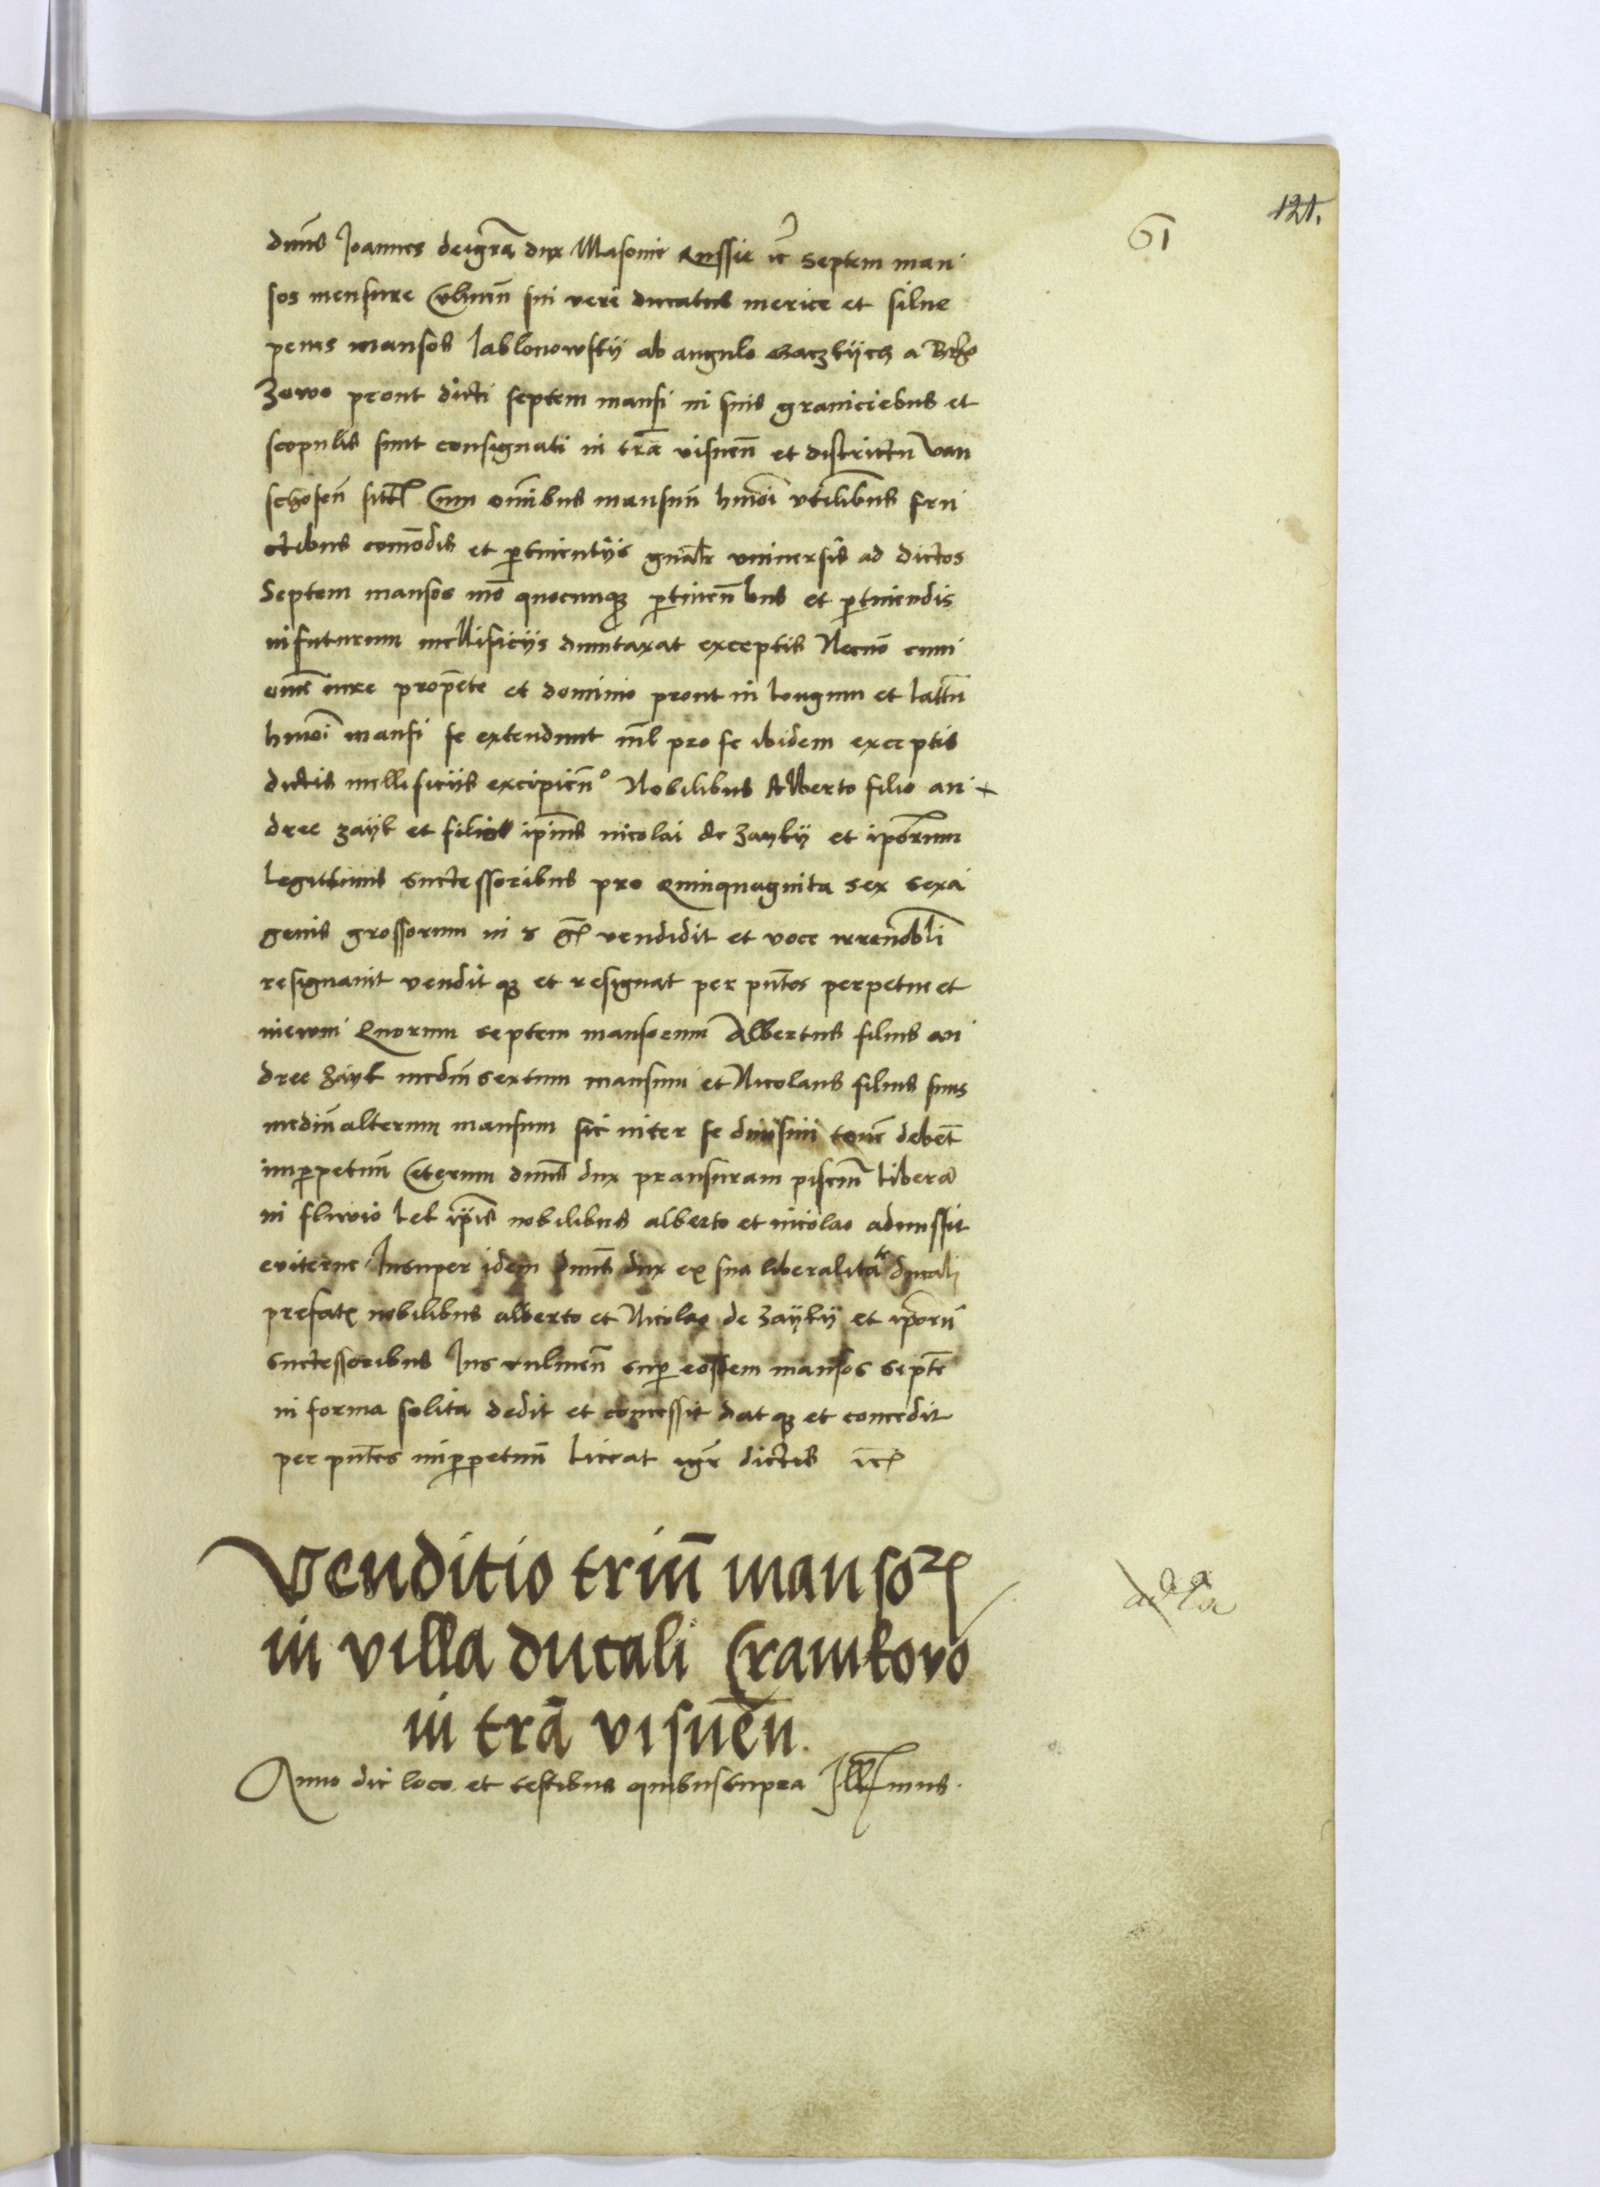 121.
61
dnus Joannes dei gra dux Masouie Russie ic septem man
sos mensure Culmen sui veri ducatus merice et silue
penes mansos Jablonowsky ab angulo
zowo prout dicti septem mansi in suis graniciebus et
scopulis sunt consignati in tra visnen et districtu wan
schosen Cum omnibus mansum hmoi vtilibus fru
ctibus comodis et ptinentijs gnalr vniuersis ad dictos
Septem mansos mo quocunque ptinenbus et ptinendis
in futurum mellificijs duntaxat exceptis Necno cum
omni iure propete et dominio prout in longum et latum
hmoi mansi se extendunt nil pro se ibidem exceptis
dictis mellificijs excipien Nobilibus Alberto filio an
dree zayk et filio ipius nicolai de zayky et iporum
legittimis successoribus pro Quinquaginta sex sexa
genis grossorum in vendidit et voce irreuobli
resignauit vendit que et resignat per pntes perpetue et
in ewm Quorum septem mansorum Albertus filius an
dree zayk mediu sextum mansum et Nicolaus filius suus
mediu alterum mansum sic inter se diuisim tene debet
inppetuu Ceterum dnus dux pransuram pisciu libera
in fluuio Lek ipis nobilibus alberto et nicolao admissit
euiterne Insuper idem dnus dux ex sua liberalitate ducali
prefatis nobilibus alberto et Nicolao de zayky et iporu
successoribus Jus culmen sup eosdem mansos septe
in forma solita dedit et concessit dat que et concedit
per pntes inppetuu liceat igr dictis ic
Venditio triu mansor
in villa ducali Cramkovo
in tra visnen.
Anno die loco et testibus quibus supra Illmus.